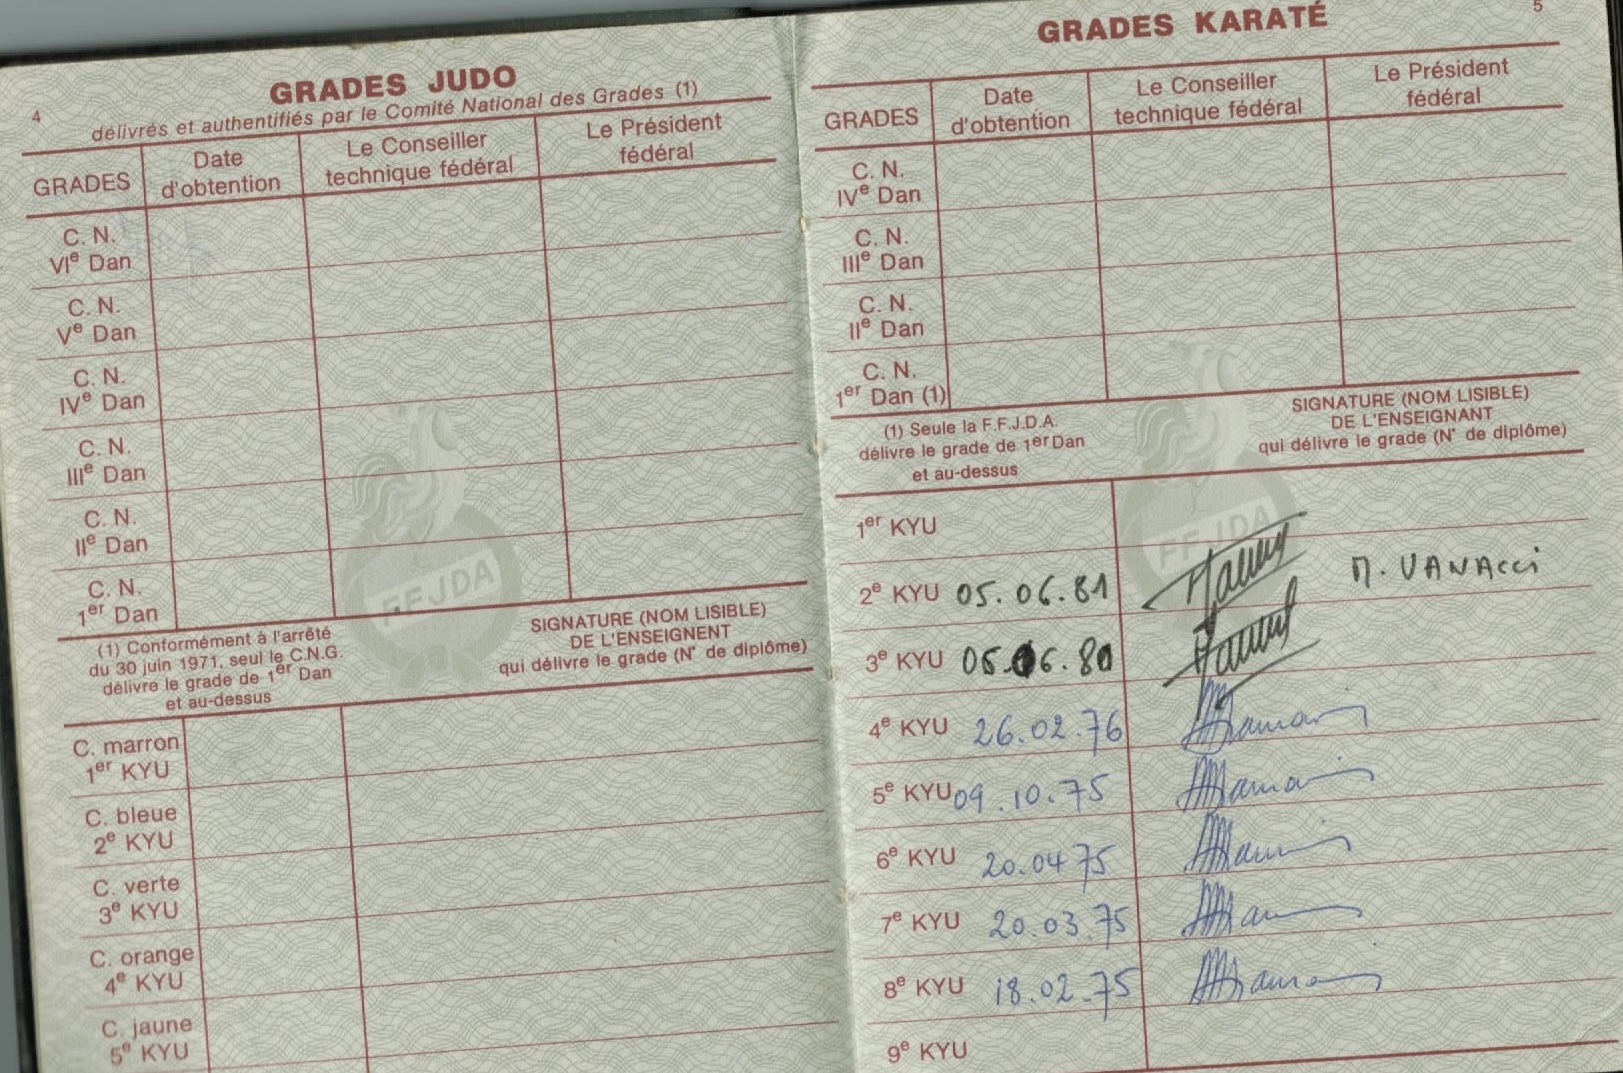 4
GRADES JUDO
délivrés et authentifiés par le Comité National des Grades (1)
GRADES
Date
d'obtention
Le Conseiller
technique fédéral
Le Président
fédéral
C. N.
VIe Dan
C. N.
Ve Dan
C. N.
IVe Dan
C. N.
IIIe Dan
C. N.
IIe Dan
C. N.
1er Dan
FFJDA
(1) Conformément à l'arrêté
du 30 juin 1971, seul le C.N.G.
délivre le grade de 1er Dan
et au-dessus
SIGNATURE (NOM LISIBLE)
DE L'ENSEIGNENT
qui délivre le grade (N° de diplôme)
C. marron
1er KYU
C. bleue
2e KYU
C. verte
3e KYU
C. orange
4e KYU
C. jaune
5e KYU
5
GRADES KARATÉ
GRADES
Date
d'obtention
Le Conseiller
technique fédéral
Le Président
fédéral
C. N.
IVe Dan
C. N.
IIIe Dan
C. N.
IIe Dan
C. N.
1er Dan (1)
(1) Seule la F.F.J.D.A.
délivre le grade de 1er Dan
et au-dessus
SIGNATURE (NOM LISIBLE)
DE L'ENSEIGNANT
qui délivre le grade (N° de diplôme)
FFJDA
1er KYU
2e KYU 05.06.81 M. VANACCi
3e KYU 05.06.80
4e KYU 26.02.76
5e KYU 09.10.75
6e KYU 20.04 75
7e KYU 20.03.75
8e KYU 18.02.75
9e KYU